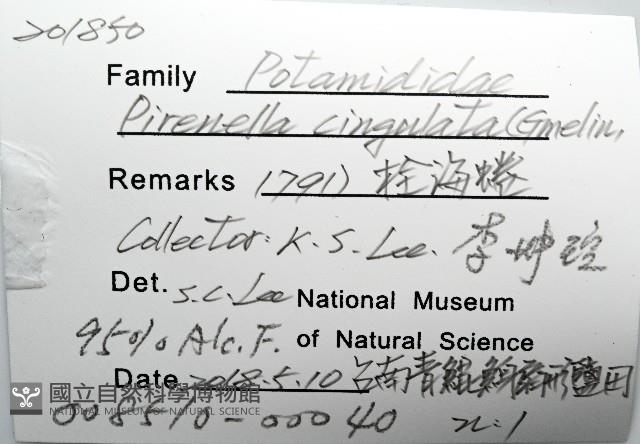 201850
Family Potamididae
Pirenella cingulata (Gmelin,
Remarks 1791) 栓海蜷
Collector: K. S. Lee. 李坤瑄
Det. S.C. Lee National Museum
95% Alc. F. of Natural Science
Date 2018.5.10 台南青鯤鯓扇形鹽田
國立自然科學博物館
NATIONAL MUSEUM OF NATURAL SCIENCE
008510-00040 n:1